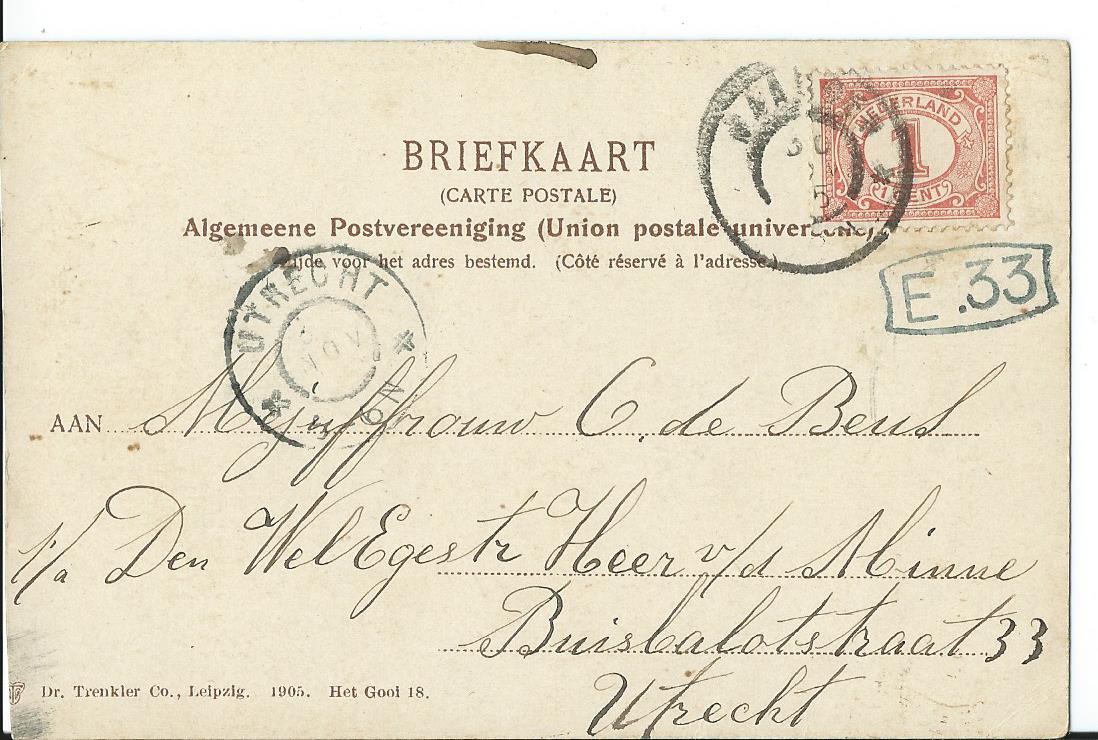 BRIEFKAART
(CARTE POSTALE)
Algemeene Postvereeniging (Union postale universelle)
Zijde voor het adres bestemd. (Côté réservé à l'adresse.)
NEDERLAND
1
1 CENT
5
E.33
UTRECHT
NOV
AAN Mejuffrouw C. de Beus
p/a Den WelEgestr Heer v/d Minne
Buisbalotstraat 33
Utrecht
Dr. Trenkler Co., Leipzig. 1905. Het Gooi 18.